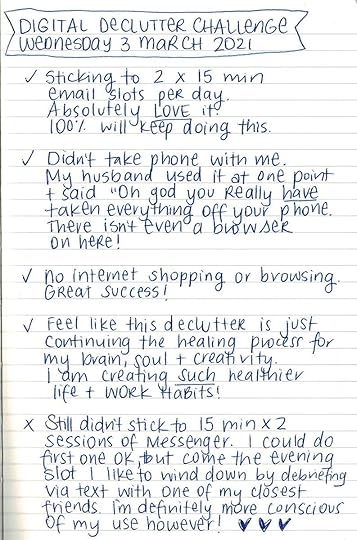 DIGITAL DECLUTTER CHALLENGE
WEDNESDAY 3 MARCH 2021
✓ Sticking to 2 x 15 min
email slots per day.
Absolutely LOVE it.
100% will keep doing this.
✓ Didn't take phone with me.
My husband used it at one point
+ said "Oh god you really have
taken everything off your phone.
There isn't even a browser
on here!
✓ No internet shopping or browsing.
Great success!
✓ Feel like this declutter is just
continuing the healing process for
my brain, soul + creativity.
I am creating such healthier
life + work habits!
x Still didn't stick to 15 min x 2
sessions of Messenger. I could do
first one ok, but come the evening
slot I like to wind down by debriefing
via text with one of my closest
friends. I'm definitely more conscious
of my use however! ♥ ♥ ♥